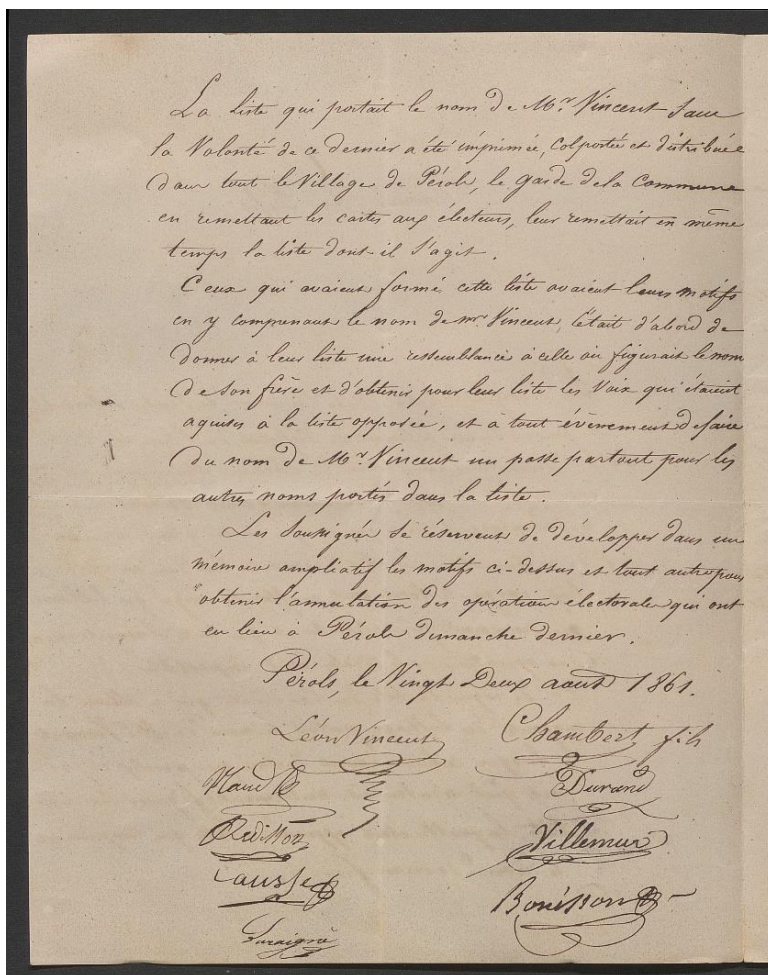 La liste qui portait le nom de Mr. Vincent sans
la Volonté de ce dernier a été imprimée, colportée et distribuée
dans tout le Village de Pérols, le garde de la Commune
en remettant les cartes aux électeurs, leur remettait en même
temps la liste dont-il s'agit.
Ceux qui avaient formé cette liste avaient leurs motifs
en y comprenant le nom de mr Vincent, c'était d'abord de
donner à leur liste une ressemblance à celle où figurait le nom
de son frère et d'obtenir pour leur liste les Voix qui étaient
aquises à la liste opposée, et à tout évènement de faire
du nom de Mr. Vincent un passe partout pour les
autres noms portés dans la liste.
Les soussignés se réservent de développer dans un
mémoire ampliatif les motifs ci-dessus et tout autre pour
obtenir l'annulation des opérations électorales qui ont
eu lieu à Pérols dimanche dernier.
Pérols, le Vingt Deux aout 1861.
Léon Vincent
Chambert fils
Durand
Villemur
Causse
Bouisson